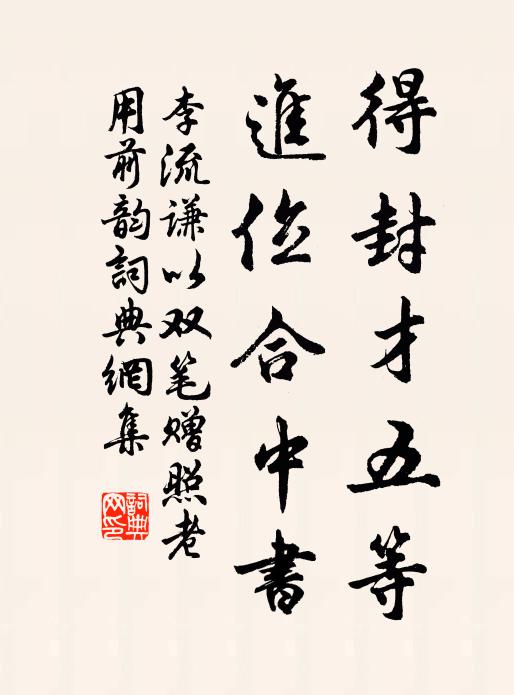 得封才五等
進位合中書
李流谦以双笔赠照老
用前韵詞典網集
詞典网印